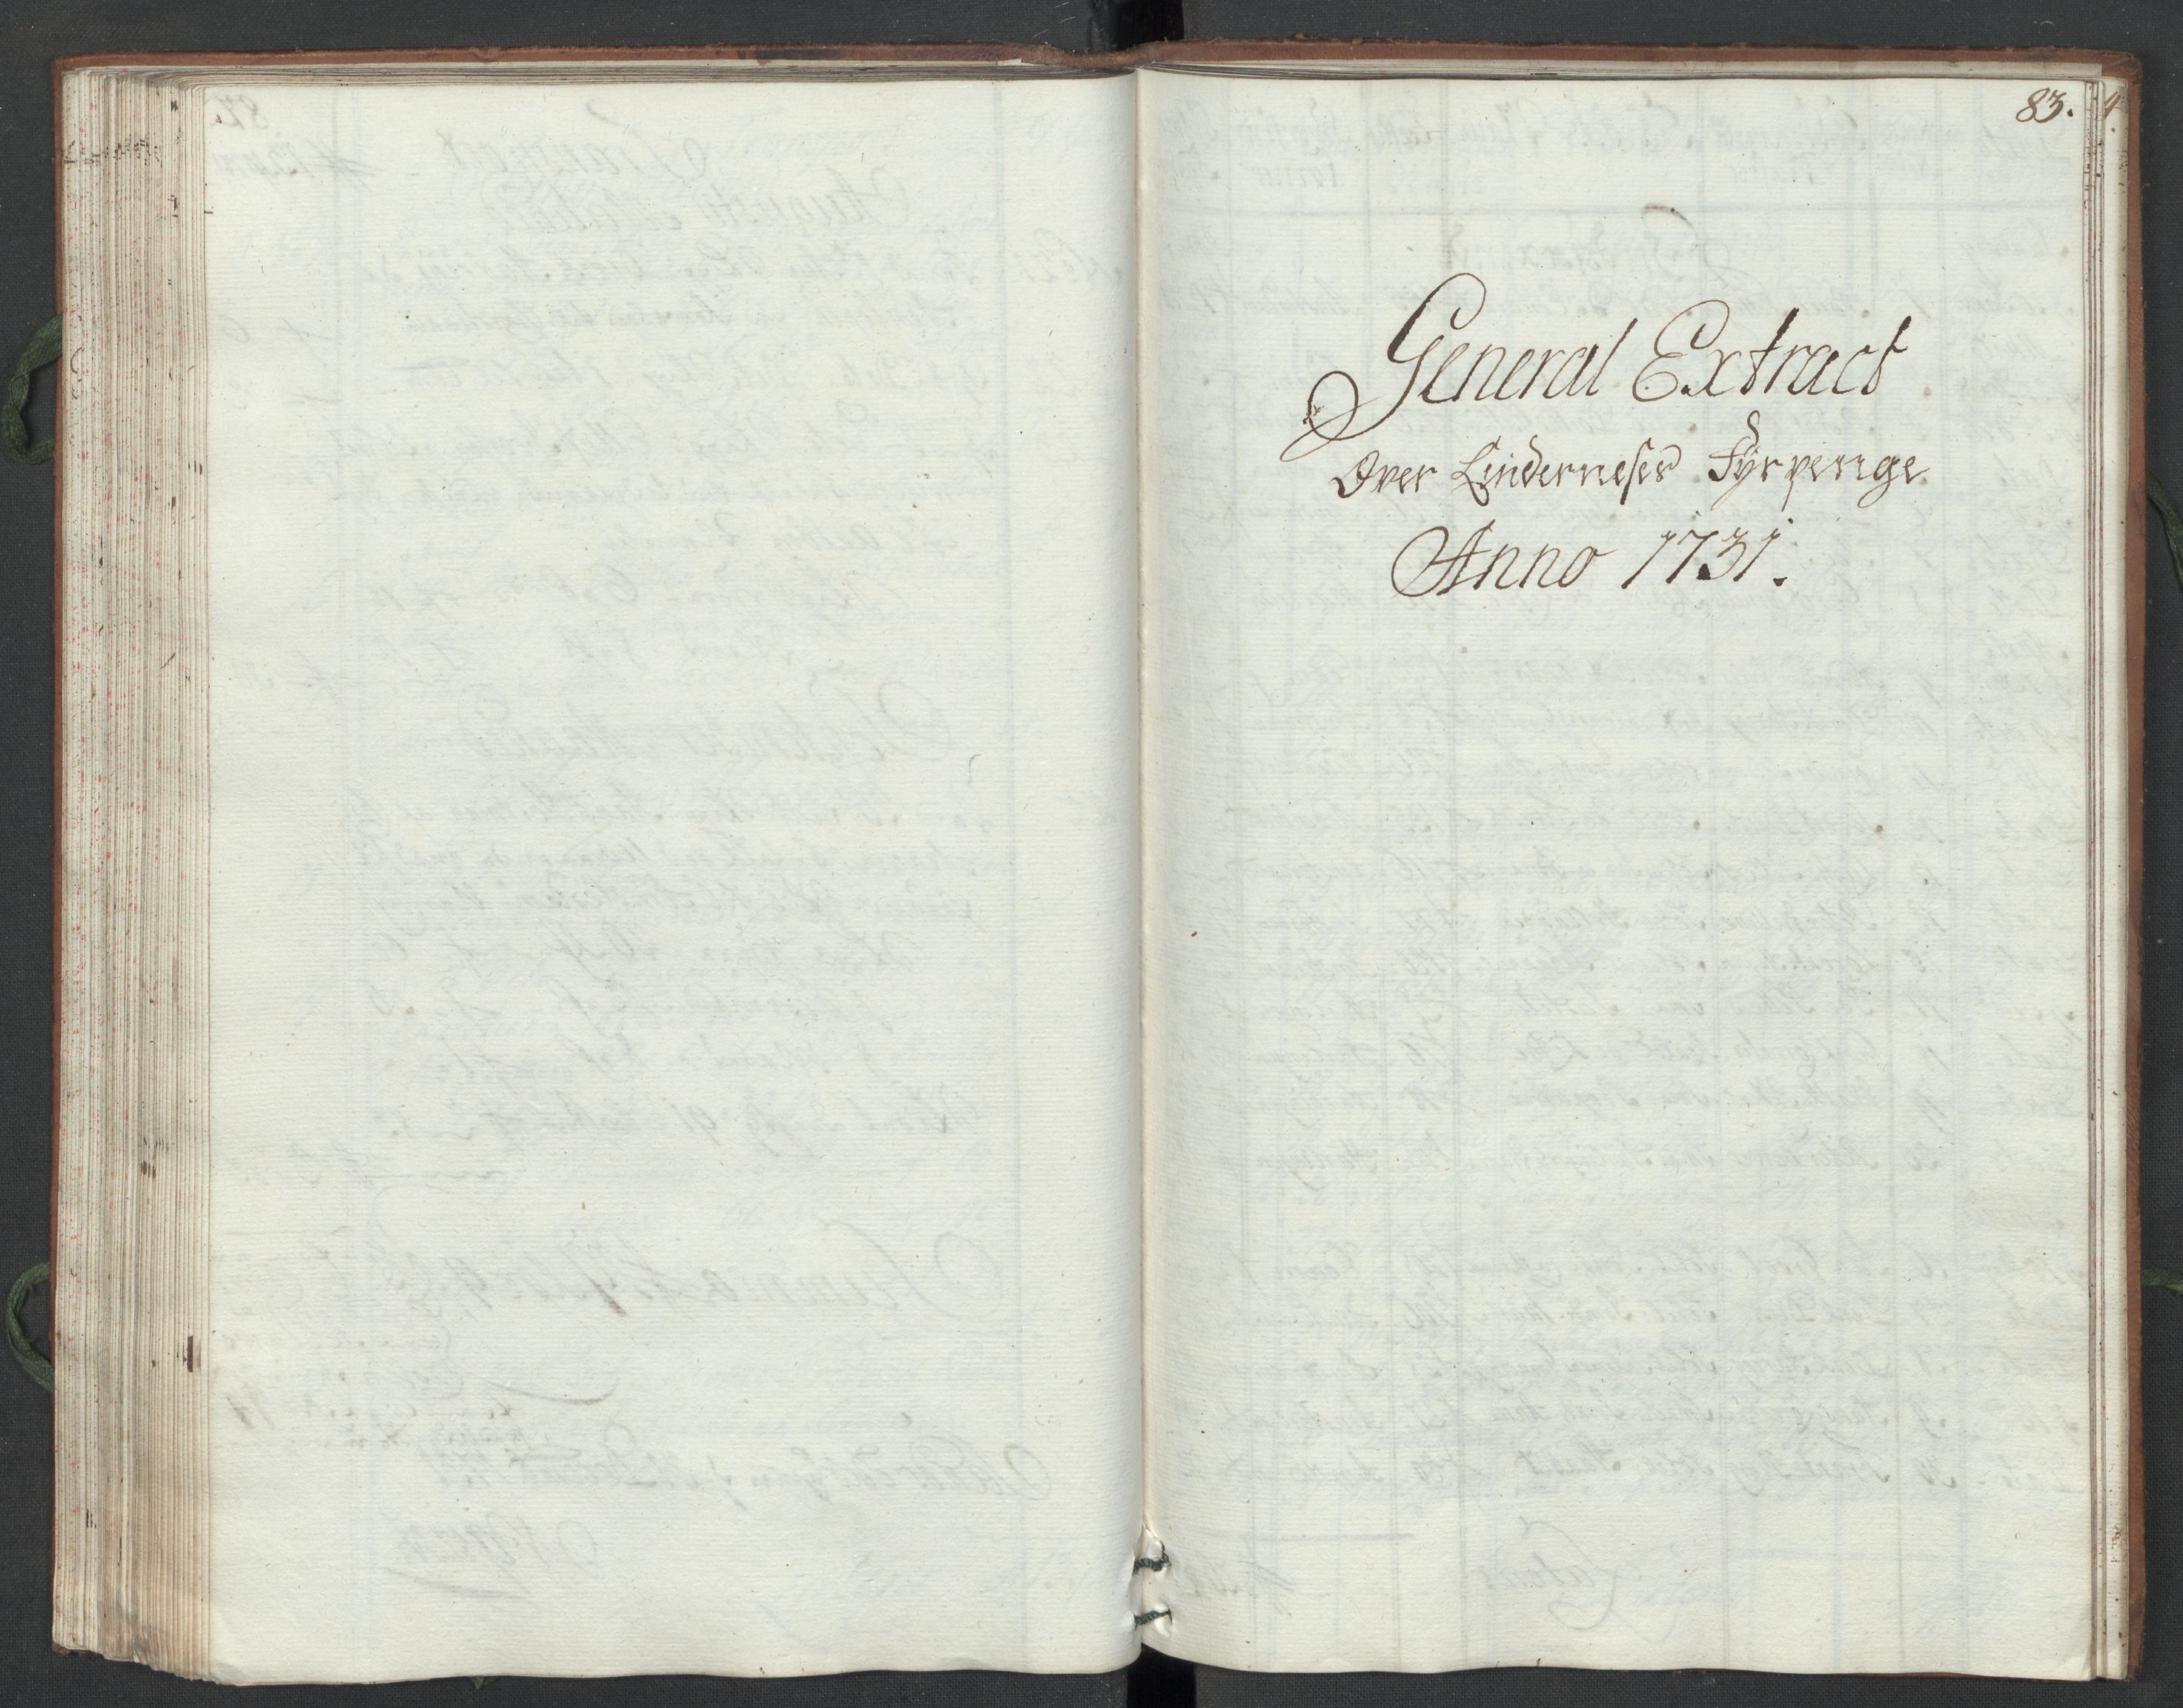 83.
General Extract
Over Lindernesis Fyrpenge
Anno 1731.